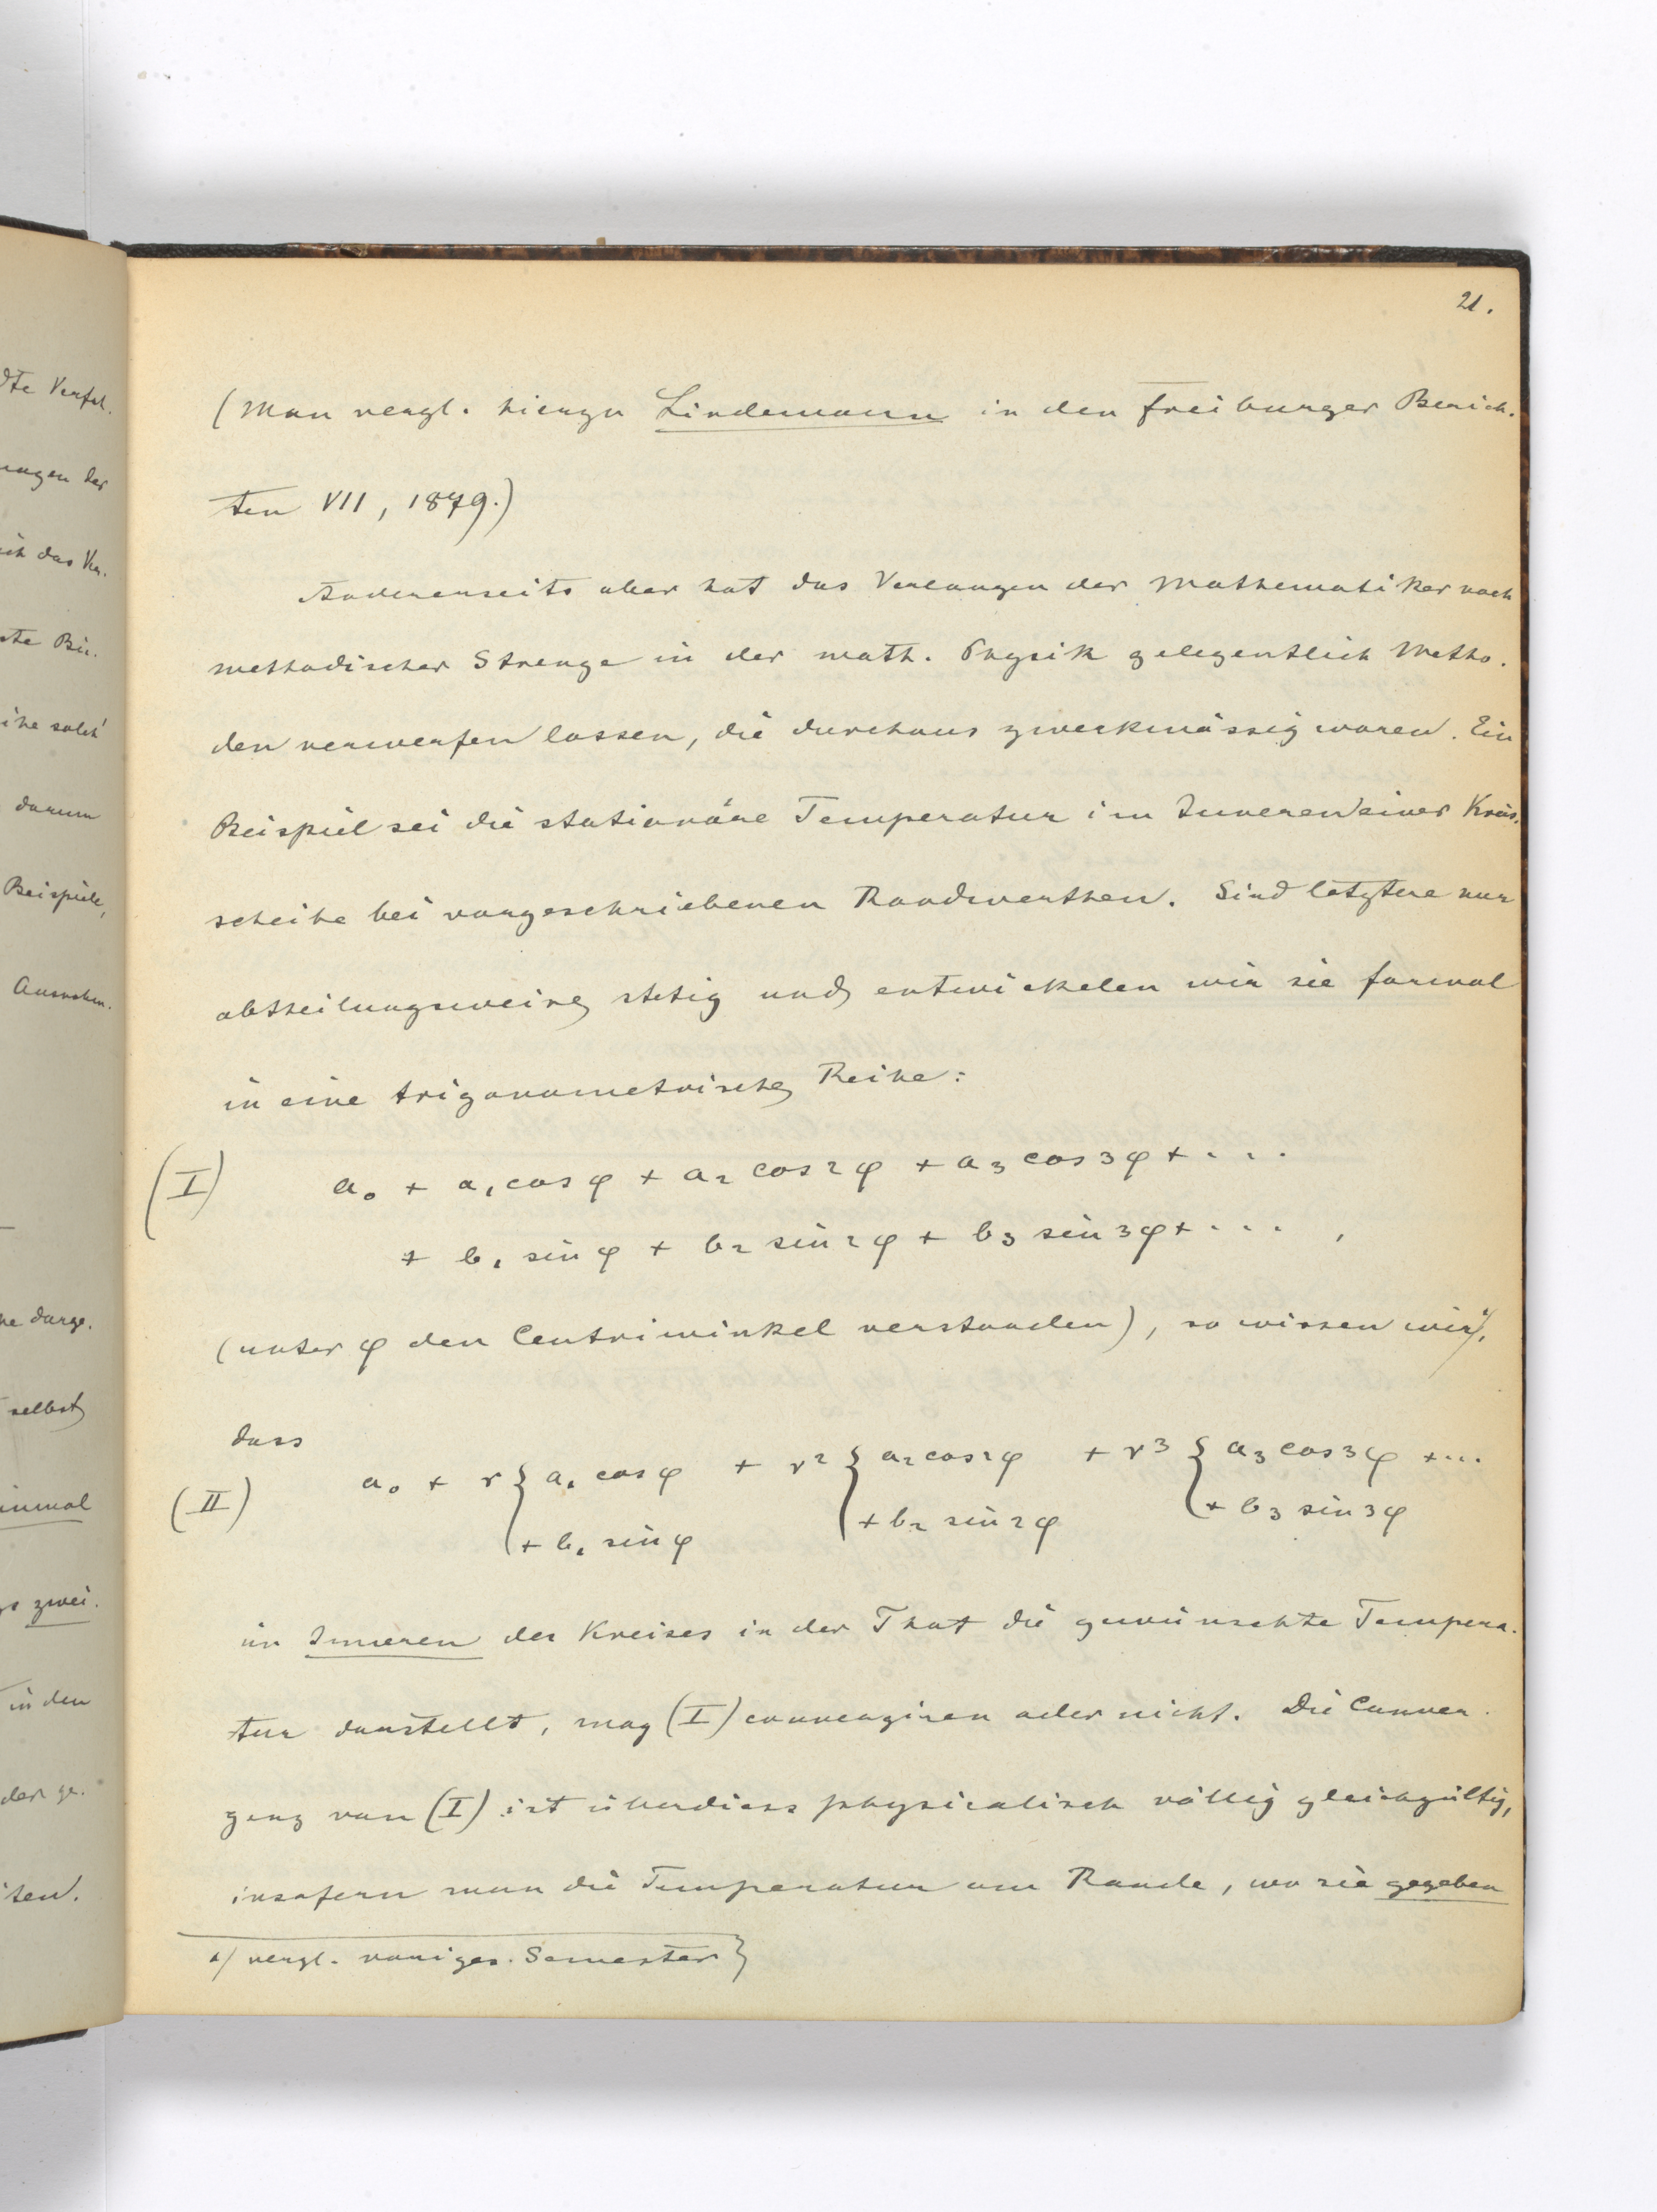 dte Verfah-
ungen der
ich das Ver-
ste Bei-
ihe solch'
darum
Beispiele,
Ausnahm-
ne darge-
selbst
inmal
zwei-
in den
der ge-
ten.
21.
(Man vergl. hierzu Lindemann in den Freiburger Berich-
ten VII, 1879.)
Andererseits aber hat das Verlangen der Mathematiker nach
methodischer Strenge in der math. Physik gelegentlich Metho-
den verwerfen lassen, die durchaus zweckmässig waren. Ein
Beispiel sei die stationäre Temperatur im Inneren einer Kreis-
scheibe bei vorgeschriebenen Randwerthen. Sind letztere nur
abtheilungsweise stetig und entwickelen wir sie formal
in eine trigonometrische Reihe:
(I) a₀ + a₁ cos φ + a₂ cos 2φ + a₃ cos 3φ + . . .
+ b₁ sin φ + b₂ sin 2φ + b₃ sin 3φ + . . . ,
(unter φ den Centriwinkel verstanden), so wissen wir¹⁾,
dass
(II) a₀ + r { a₁ cos φ + r² { a₂ cos 2φ + r³ { a₃ cos 3φ + ...
+ b₁ sin φ + b₂ sin 2φ + b₃ sin 3φ
im Inneren des Kreises in der That die gewünschte Tempera-
tur darstellt, mag (I) convergiren oder nicht. Die Conver-
genz von (I) ist überdiess physicalisch völlig gleichgültig,
insofern man die Temperatur am Rande, wo sie gegeben
¹⁾ vergl. voriges Semester}